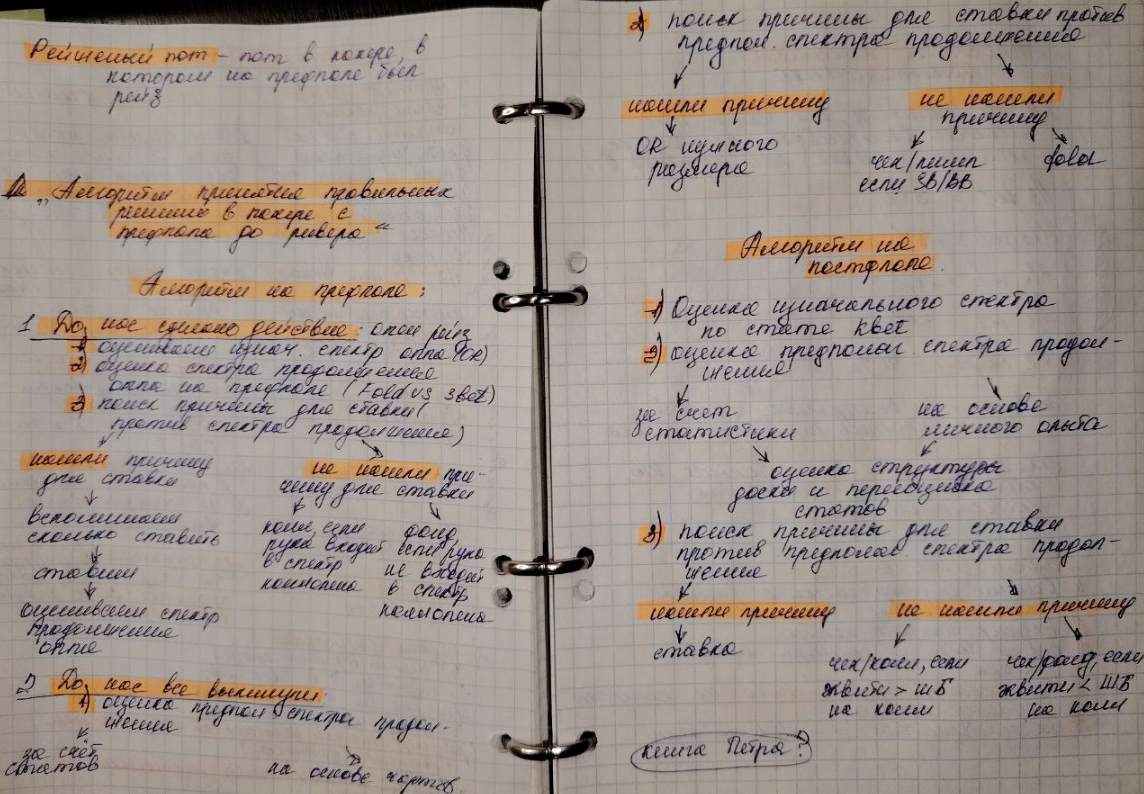 Рейженый пот – пот в покере, в
котором на префлопе был
рейз
"Алгоритм принятия правильных
решений в покере с
префлопа до ривера"
Алгоритм на префлопе:
1 До нас сделано действие: опен рейз
1) оцениваем изнач. спектр оппа (OR)
2) оценка спектра продолжения
оппа на префлопе (Fold vs 3bet)
3) поиск причины для ставки (
против спектра продолжения)
нашли причину
для ставки
вспоминаем
сколько ставить
ставим
оцениваем спектр
продолжения
оппа
не нашли при-
чину для ставки
колл, если
рука входит
в спектр
коллопена
фолд
если рука
не входит
в спектр
коллопена
2) До нас все выкинули
1) оценка предпол. спектра продол-
жения
за счёт
статов
на основе чартов
2) поиск причины для ставки против
предпол. спектра продолжения
нашли причину
OR нужного
размера
не нашли
причину
чек/лимп
если SB/BB
fold
Алгоритм на
постфлопе.
1) Оценка изначального спектра
по стате
2) оценка предполаг спектра продол-
жения
за счет
статистики
на основе
личного опыта
оценка структуры
доски и переоценка
статов
3) поиск причины для ставки
против предполаг спектра продол-
жения
нашли причину
ставка
не нашли причину
чек/колл, если
эквити > ШБ
на колл
чек/фолд, если
эквити < ШБ
на колл
Книга Петра?